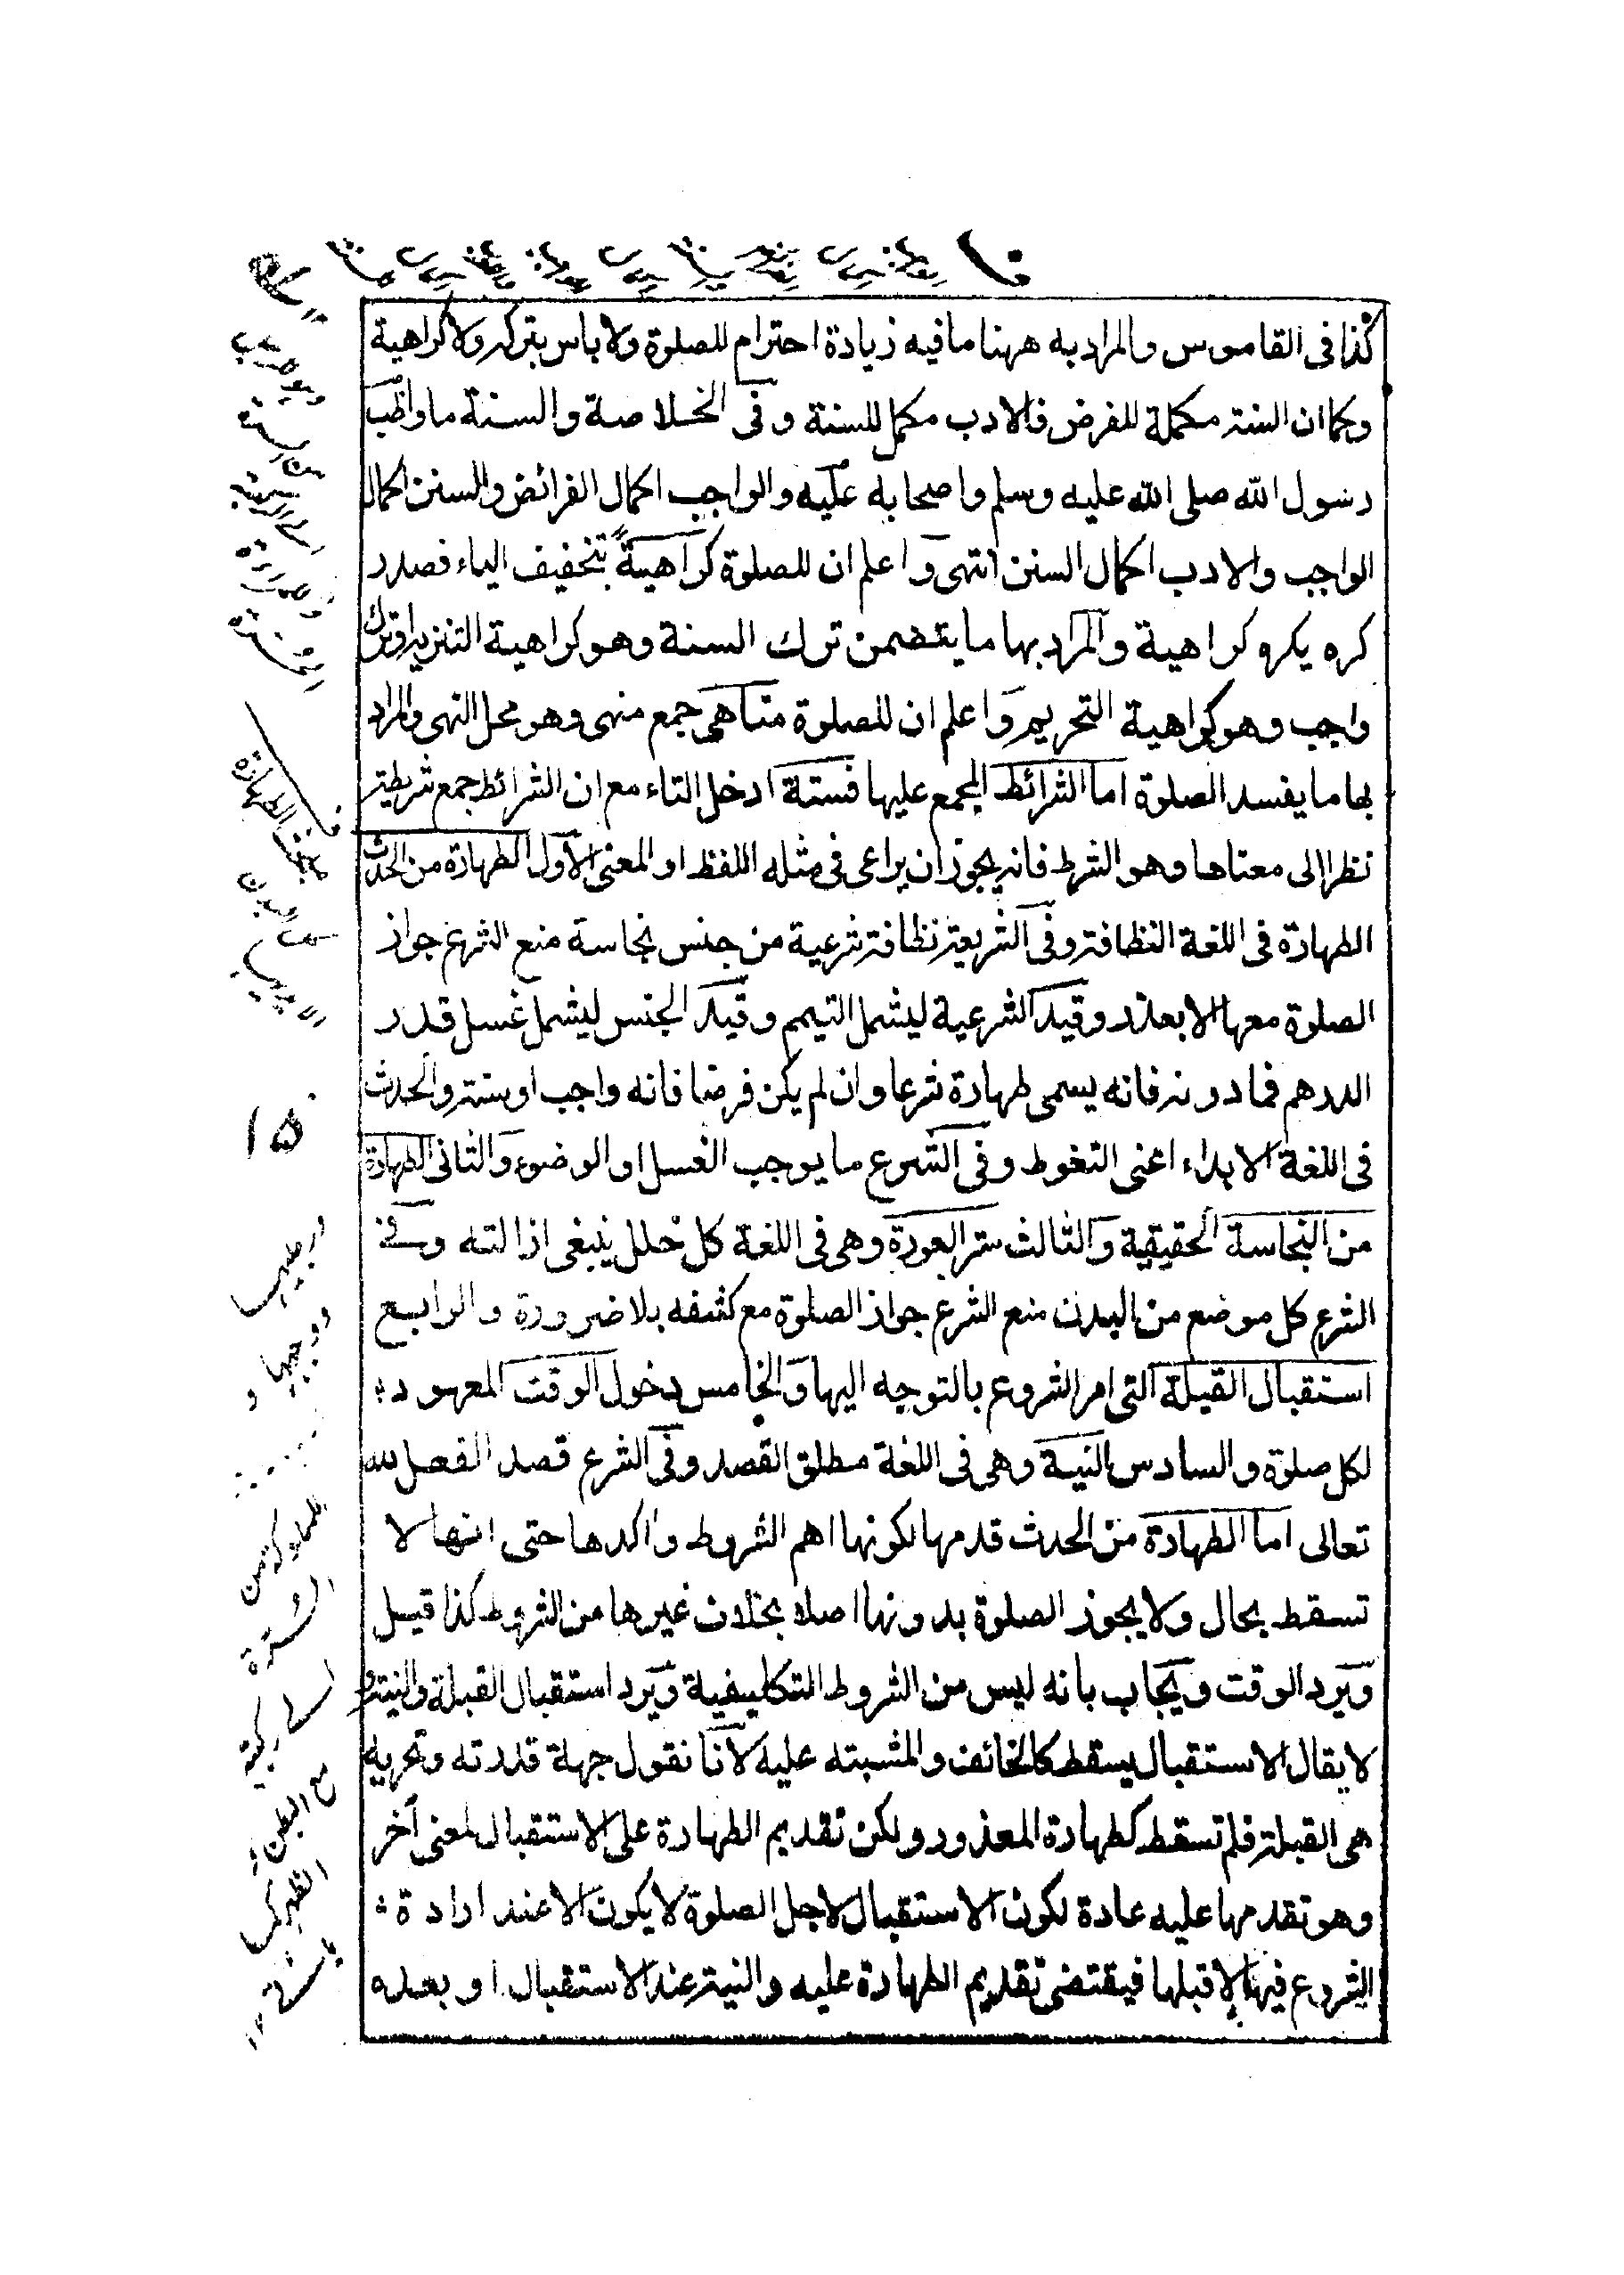 كذا فى القاموس والمراد به ههنا ما فيه زيادة احترام للصلوة ولا باس بتركه ولا كراهية
وكما ان السنة مكملة للفرض فالادب مكمل للسنة وفى الخلاصة والسنة ما واظب
رسول الله صلى الله عليه وسلم واصحابه عليه والواجب اكمال الفرائض والسنن اكمال
الواجب والادب اكمال السنن انتهى واعلم ان للصلوة كراهيةً بتخفيف الياء فصدر
كره يكره كراهية والمراد بها ما يتضمن ترك السنة وهو كراهية التنزيه او ترك
واجب وهو كراهية التحريم واعلم ان للصلوة مناهى جمع منهى وهو محل النهى والمراد
بها ما يفسد الصلوة اما الشرائط المجمع عليها فستة ادخل التاء مع ان الشرائط جمع شريطة
نظرا الى معناها وهو الشرط فانه يجوز ان يراعى فى مثله اللفظ او المعنى الاول الطهارة من الحدث
الطهارة فى اللغة النظافة وفى الشريعة نظافة شرعية من جنس نجاسة منع الشرع جواز
الصلوة معها الا بعذر وقيد الشرعية ليشمل التيمم وقيد الجنس ليشمل غسل قدر
الدرهم فما دونه فانه يسمى طهارة شرعا وان لم يكن فرضا فانه واجب او سنة والحدث
فى اللغة الابداء اعنى التغوط وفى الشرع ما يوجب الغسل او الوضوء والثانى الطهارة
من النجاسة الحقيقية والثالث ستر العورة وهى فى اللغة كل خلل ينبغى ازالته وفى
الشرع كل موضع من البدن منع الشرع جواز الصلوة مع كشفه بلا ضرورة والرابع
استقبال القبلة التى امر الشروع بالتوجه اليها والخامس دخول الوقت المعهود
لكل صلوة والسادس النية وهى فى اللغة مطلق القصد وفى الشرع قصد الفعل لله
تعالى اما الطهارة من الحدث قدمها لكونها اهم الشروط واكدها حتى انها لا
تسقط بحال ولا يجوز الصلوة بدونها اصلا بخلاف غيرها من الشروط كذا قيل
ويرد الوقت ويجاب بانه ليس من الشروط التكليفية ويرد استقبال القبلة والنية و
لا يقال الاستقبال يسقط كالخائف والمشبته عليه لانا نقول جهة قدرته وتحريه
هى القبلة فلم تسقط كطهارة المعذور ولكن تقديم الطهارة على الاستقبال لمعنى آخر
وهو تقدمها عليه عادة لكون الاستقبال لاجل الصلوة لا يكون الا عند ارادة
الشروع فيها لا قبلها فيقتضى تقديم الطهارة عليه والنية عند الاستقبال او بعده
١٥